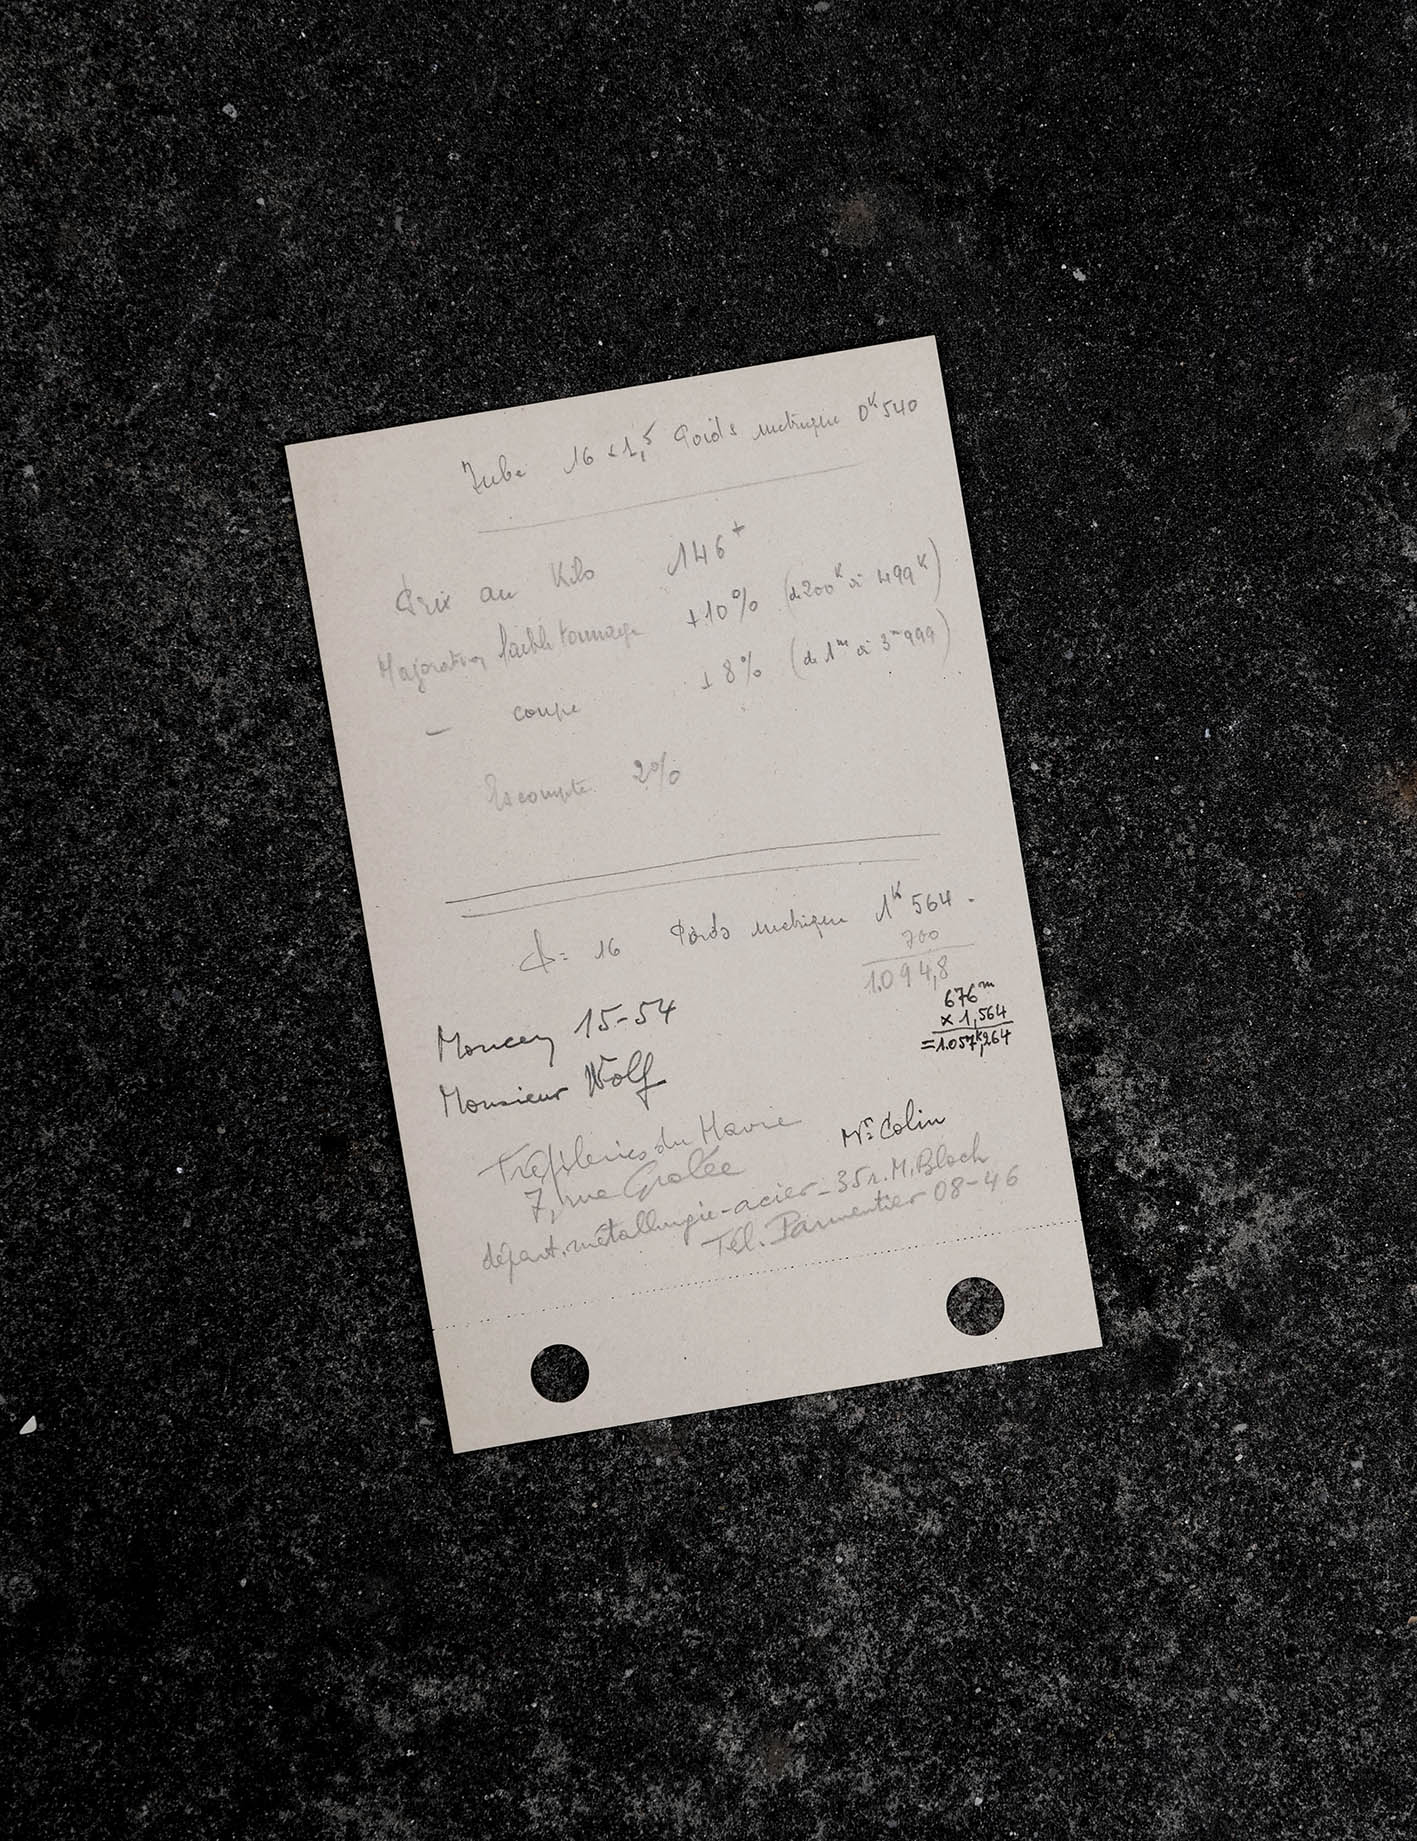 Tube 16 x 1,5 Poids métrique 0K540
Prix au Kilo 146+
Majoration faible tonnage +10% (de 200K à 499K)
— coupe +8% (de 1m à 3m999)
Escompte 2%
Φ= 16 Poids métrique 1K564.
700
1.094,8
676m
x 1,564
=1.057K,264
Moncey 15-54
Monsieur Wolf
Tréfileries du Havre Mr. Colin
7, rue Grolée
départ. métallurgie-acier-35 r. M. Bloch
Tél. Parmentier 08-46